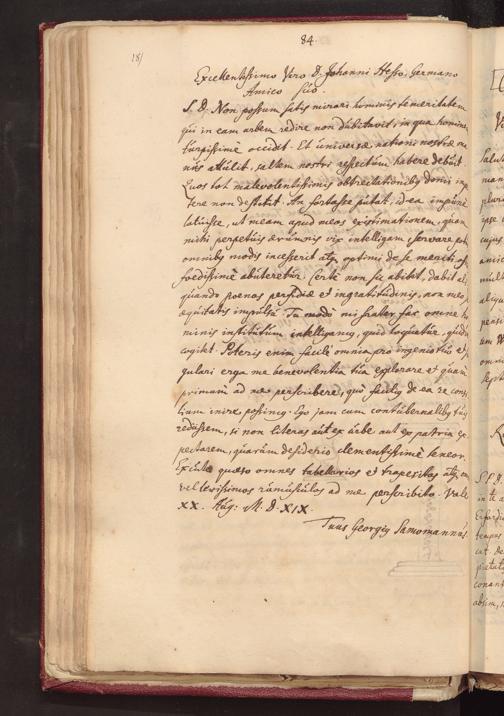 84.
181
Excellentissimo Viro D. Johanni Hesso, Germano
Amico suo.
S. D. Non possum satis mirari hominis temeritatem
qui in eam urbem redire non dubitavit, in qua homine
turpissime occidit. Et universæ nationi nostræ
attulit, saltem nostri respectum habere debuit.
Quos tot malevolentissimis obtrectationibus domi
non destitit. An fortasse putat, id ea impune
latuisse, ut meam apud meos existimationem, quam
mihi perpetuis ærumnis vix intelligam servare
omnibus modis incesserit atque optimi de se meriti
fœdissime abuteretur. Certe non sic abibit, dabit
quando poenas perfidiæ et ingratitudinis, non meo
æquitatis impulsu. Tu modo mi frater fac omne
minis institutum intelligamus, quid loquatur, quid
cogitet. Poteris enim facile omnia pro ingenio tuo et
gulari erga me benevolentia tua explorare et quam
primum ad me perscribere, quo facilius de ea re consi
lium inire possimus. Ego jam cum contubernalibus tuis
rediissem, si non literas aut ex urbe aut ex patria ex
pectarem, quarum desiderio clementissime teneor.
Excute quæso omnes tabellarios et trapezitas atque
vel levissimos rumusculos ad me perscribito. Vale
XX. Aug: M. D. XIX.
Tuus Georgius Samomannus